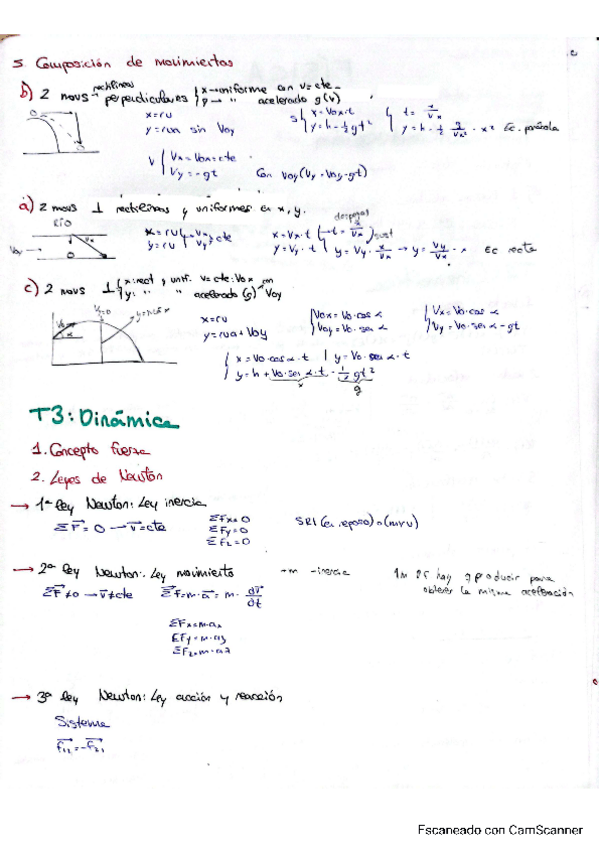 5 Composición de movimientos
b) 2 movs rectilíneos perpendiculares { x → uniforme con v=cte
y → " acelerado g(v)
x=ru
y=rua sin Voy
s { x = Vox·t
y=h-½gt²
{ t= x/Vx
y=h-½ g/Vx² · x² Ec. parábola
v { Vx=Vox=cte
Vy=-gt
Con Voy (Vy=Voy-gt)
a) 2 movs ⊥ rectilíneos y uniformes en x, y.
RÍO
Voy
x=ru
y=ru
cte
x=Vx·t
y=Vy·t
despejas
t= x/Vx
sust
y=Vy· x/Vx → y= Vy/Vx · x Ec recta
c) 2 movs ⊥ { x: rect y unif. v=cte: Vox
y: " " acelerado (g) con Voy
x=ru
y=rua+Voy
{ Vox=Vo·cos α
Voy=Vo·sen α
{ Vx=Vo·cos α
Vy=Vo·sen α - gt
{ x=Vo·cos α·t
y=Vo·sen α·t
y=h+Vo·sen α·t - ½gt²
g
T3: Dinámica
1. Concepto fuerza
2. Leyes de Newton
→ 1ª ley Newton: Ley inercia
ΣF⃗=0 → v⃗=cte
ΣFx=0
ΣFy=0
ΣFz=0
SRI (en reposo) o (mru)
→ 2ª ley Newton: Ley movimiento
-m -inercia
↑m ↑F hay q producir para
obtener la misma aceleración
ΣF⃗≠0 → v⃗≠cte
ΣF⃗=m·a⃗=m· dv⃗/dt
ΣFx=m·ax
ΣFy=m·ay
ΣFz=m·az
→ 3ª ley Newton: Ley acción y reacción
Sistema
F⃗₁₂=-F⃗₂₁
Escaneado con CamScanner